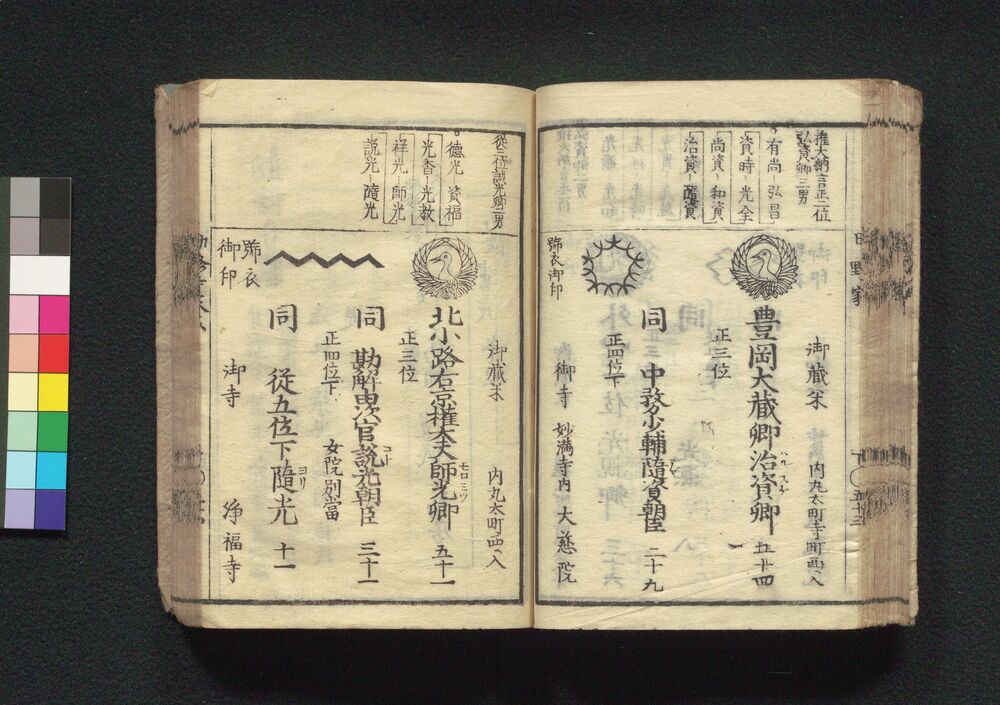 權大納言正二位
弘資卿三男
有尚－弘昌
資時－光全
尚資－和資
治資－隨資
御藏米　内丸太町寺町西へ入
豊岡大藏卿治資卿　五十四
ハルスケ
正三位
同　中務少輔隨資朝臣　二十九
正四位下
號衣御印
御寺　妙満寺内大慈院
日野家
五十三
從三位誠光卿二男
德光　資福
光香－光教
祥光－師光
説光－隨光
御藏米　内丸太町西へ入
北小路右京權大夫師光卿　五十一
モロミツ
正三位
同　勘解由次官説光朝臣　三十一
コト
正四位下　女院別當
同　從五位下隨光　十一
ヨリ
號衣
御印
御寺　浄福寺